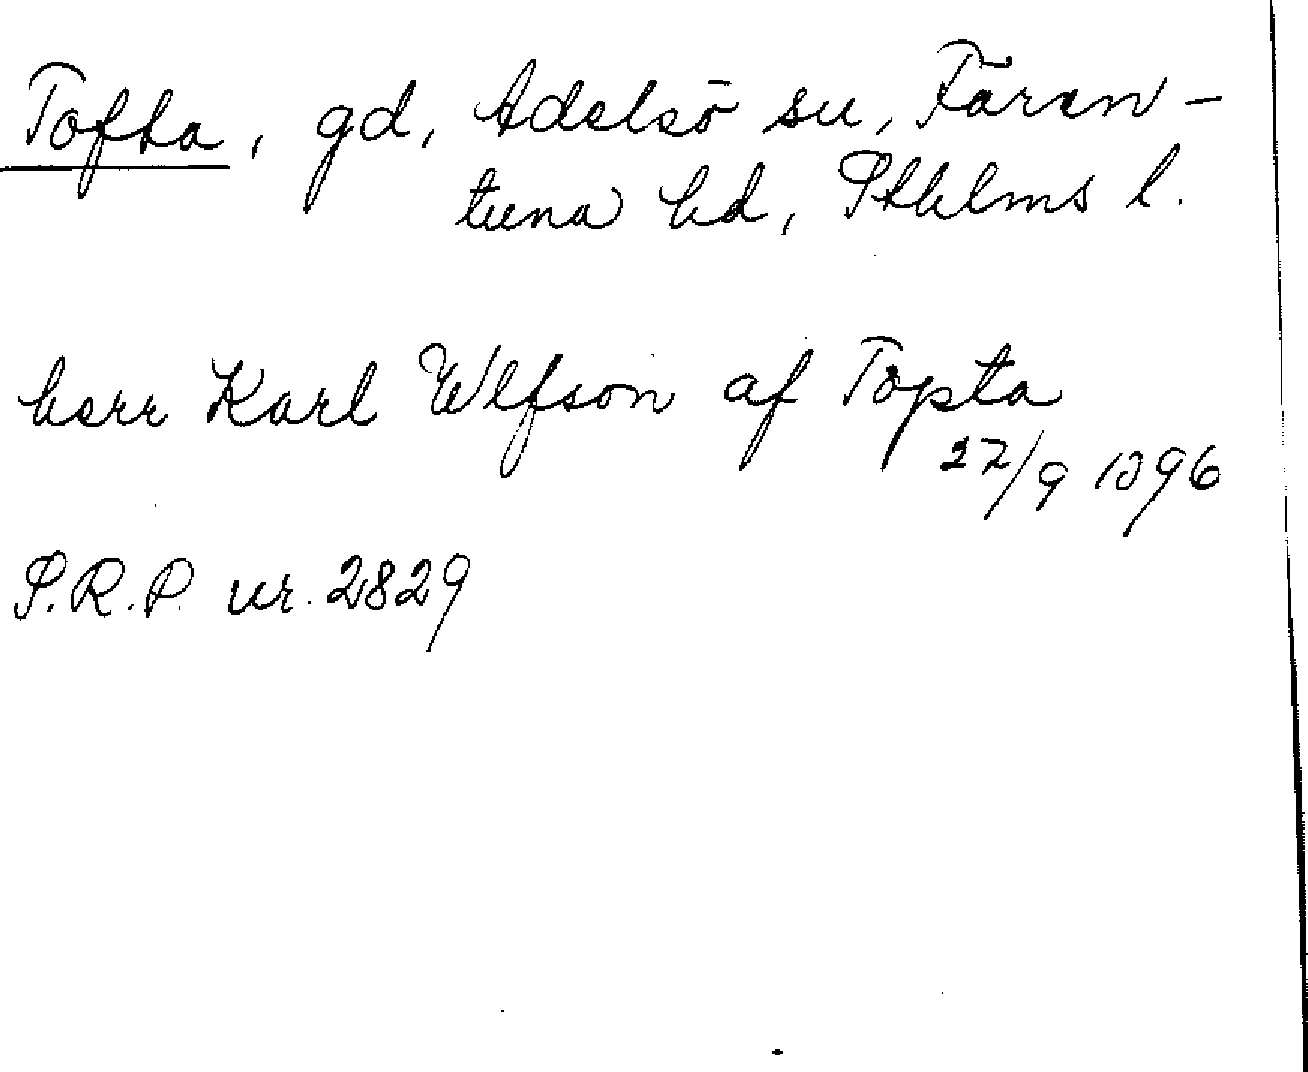 Tofta, gd, Adelsö sn, Fären-
tuna hd, Sthlms l.
herr Karl Wlfson af Topsta
27/9 1396
S.R.P. nr. 2829